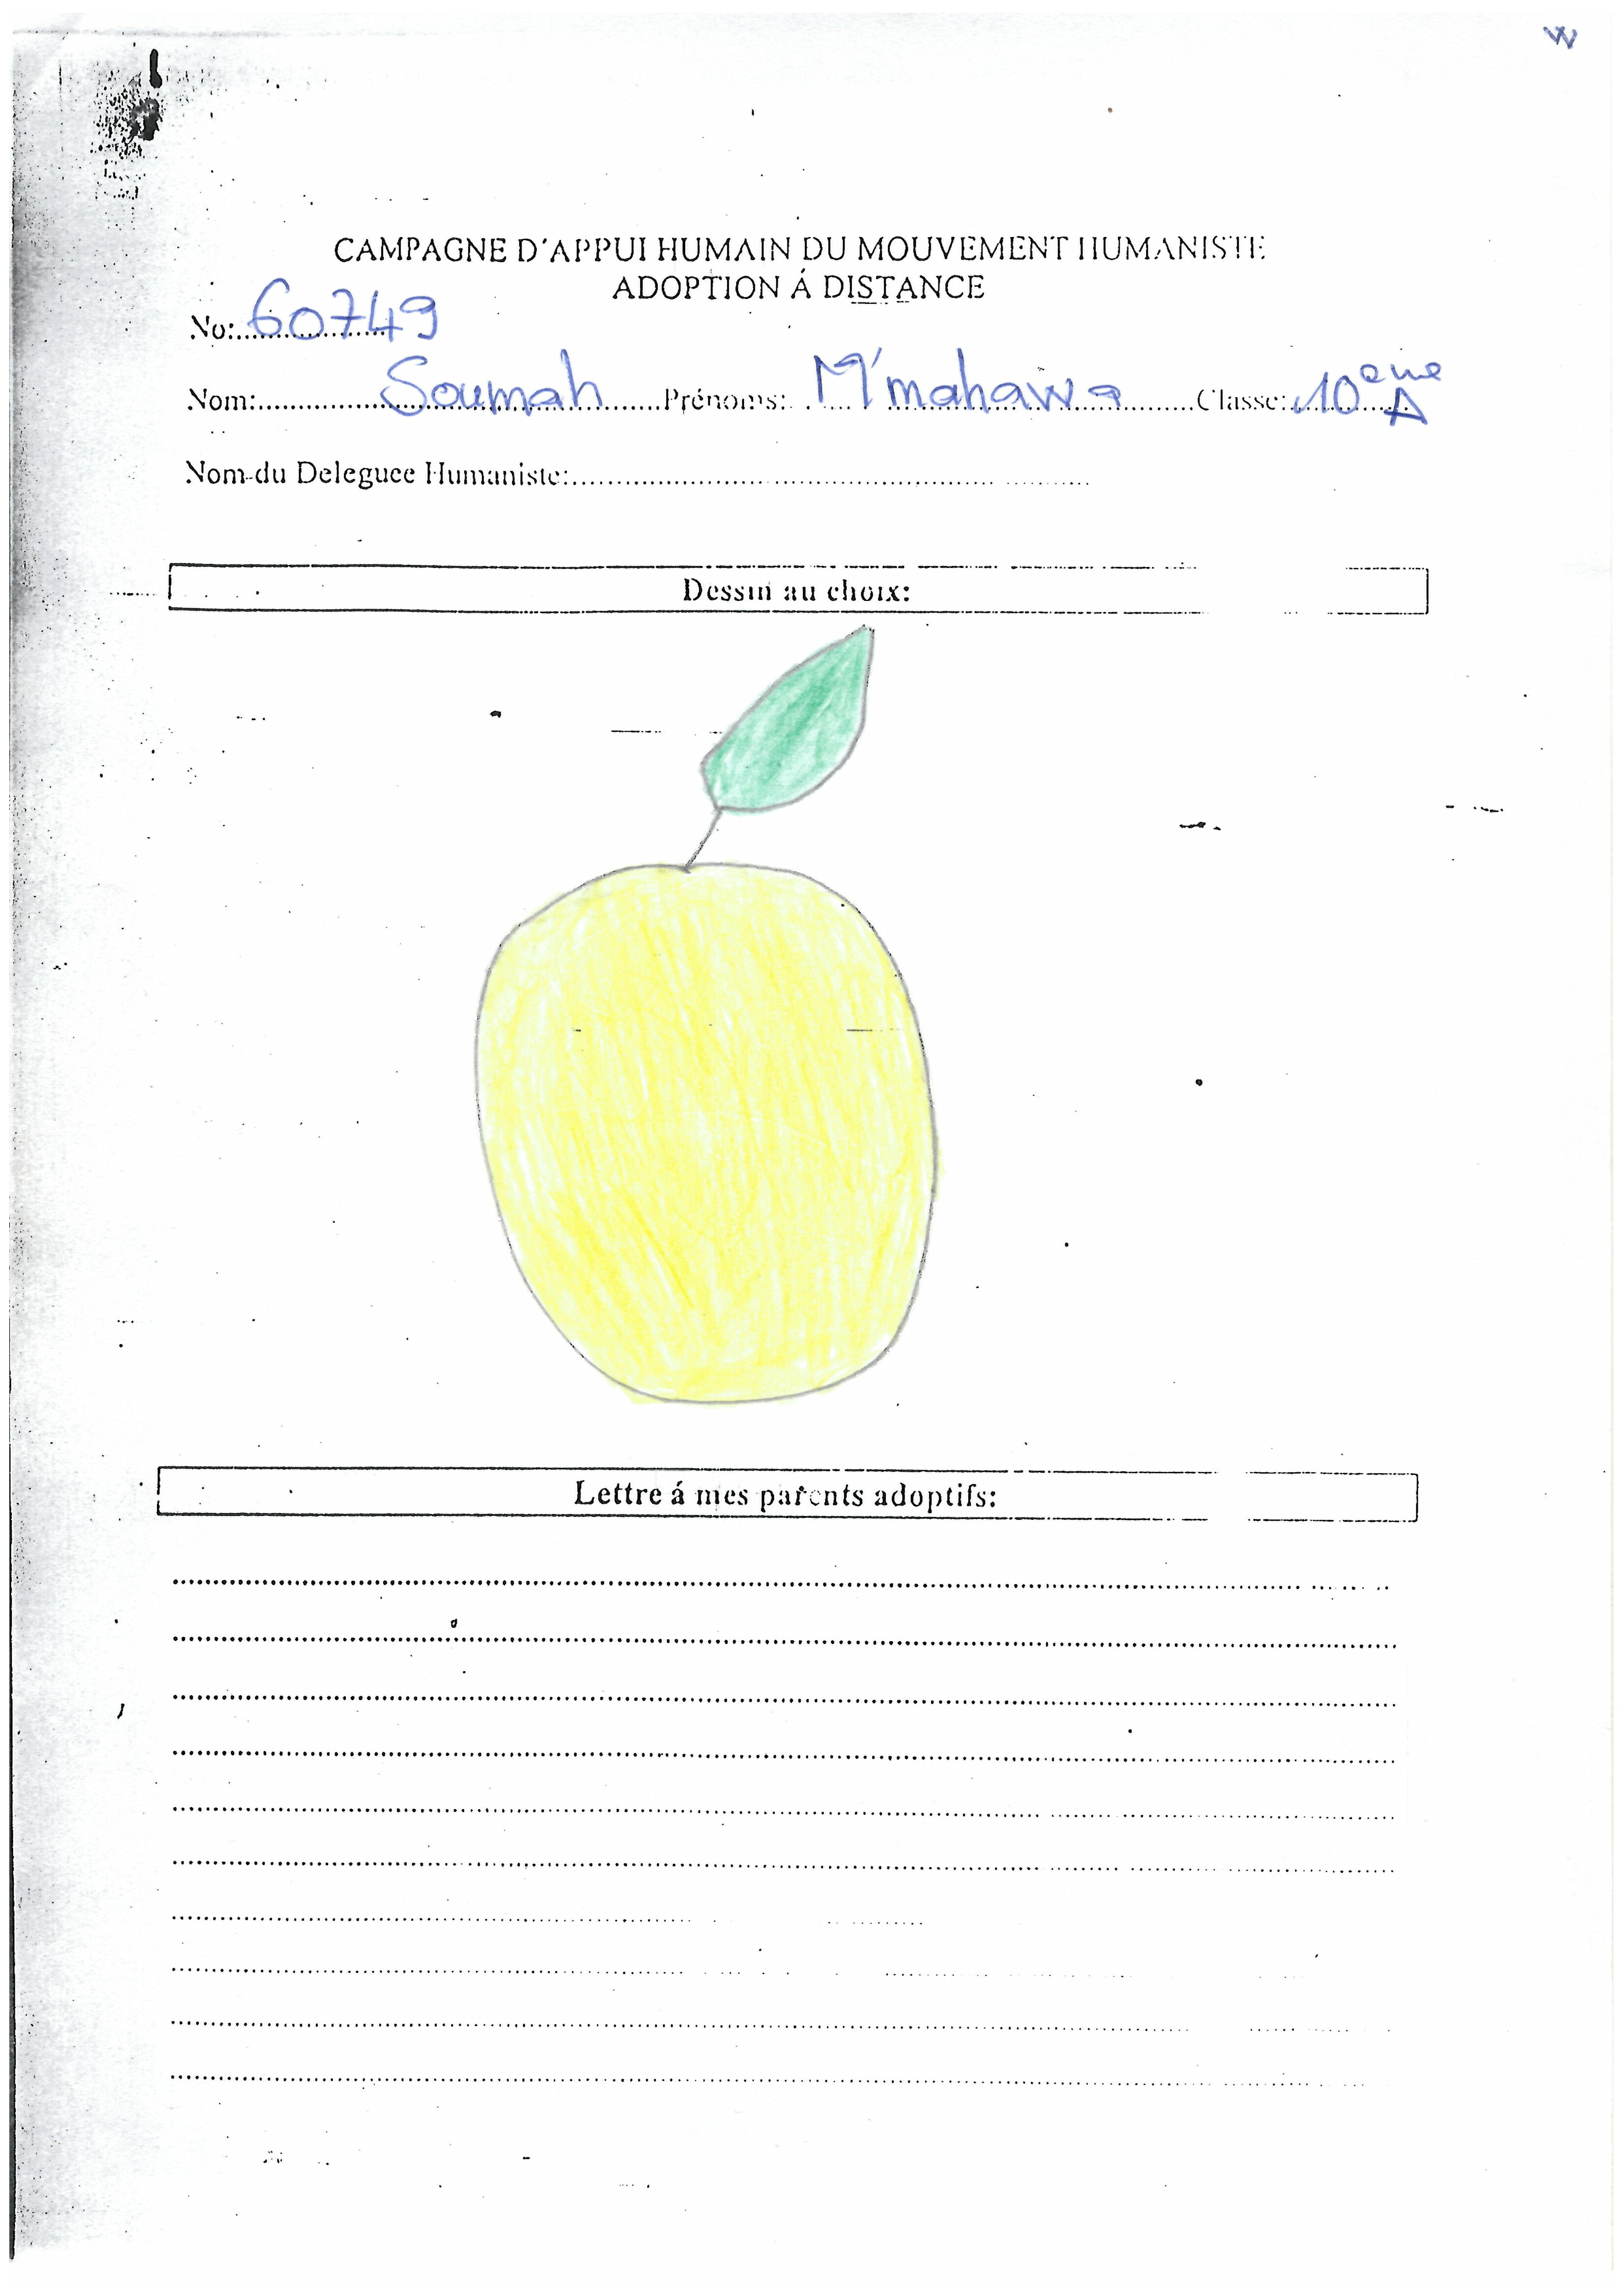 W
CAMPAGNE D'APPUI HUMAIN DU MOUVEMENT HUMANISTE
ADOPTION Á DISTANCE
No: 60749
Nom: Soumah Prénoms: M'mahawa Classe: 10ème A
Nom du Deleguee Humaniste:
Dessin au choix:
Lettre á mes parents adoptifs: